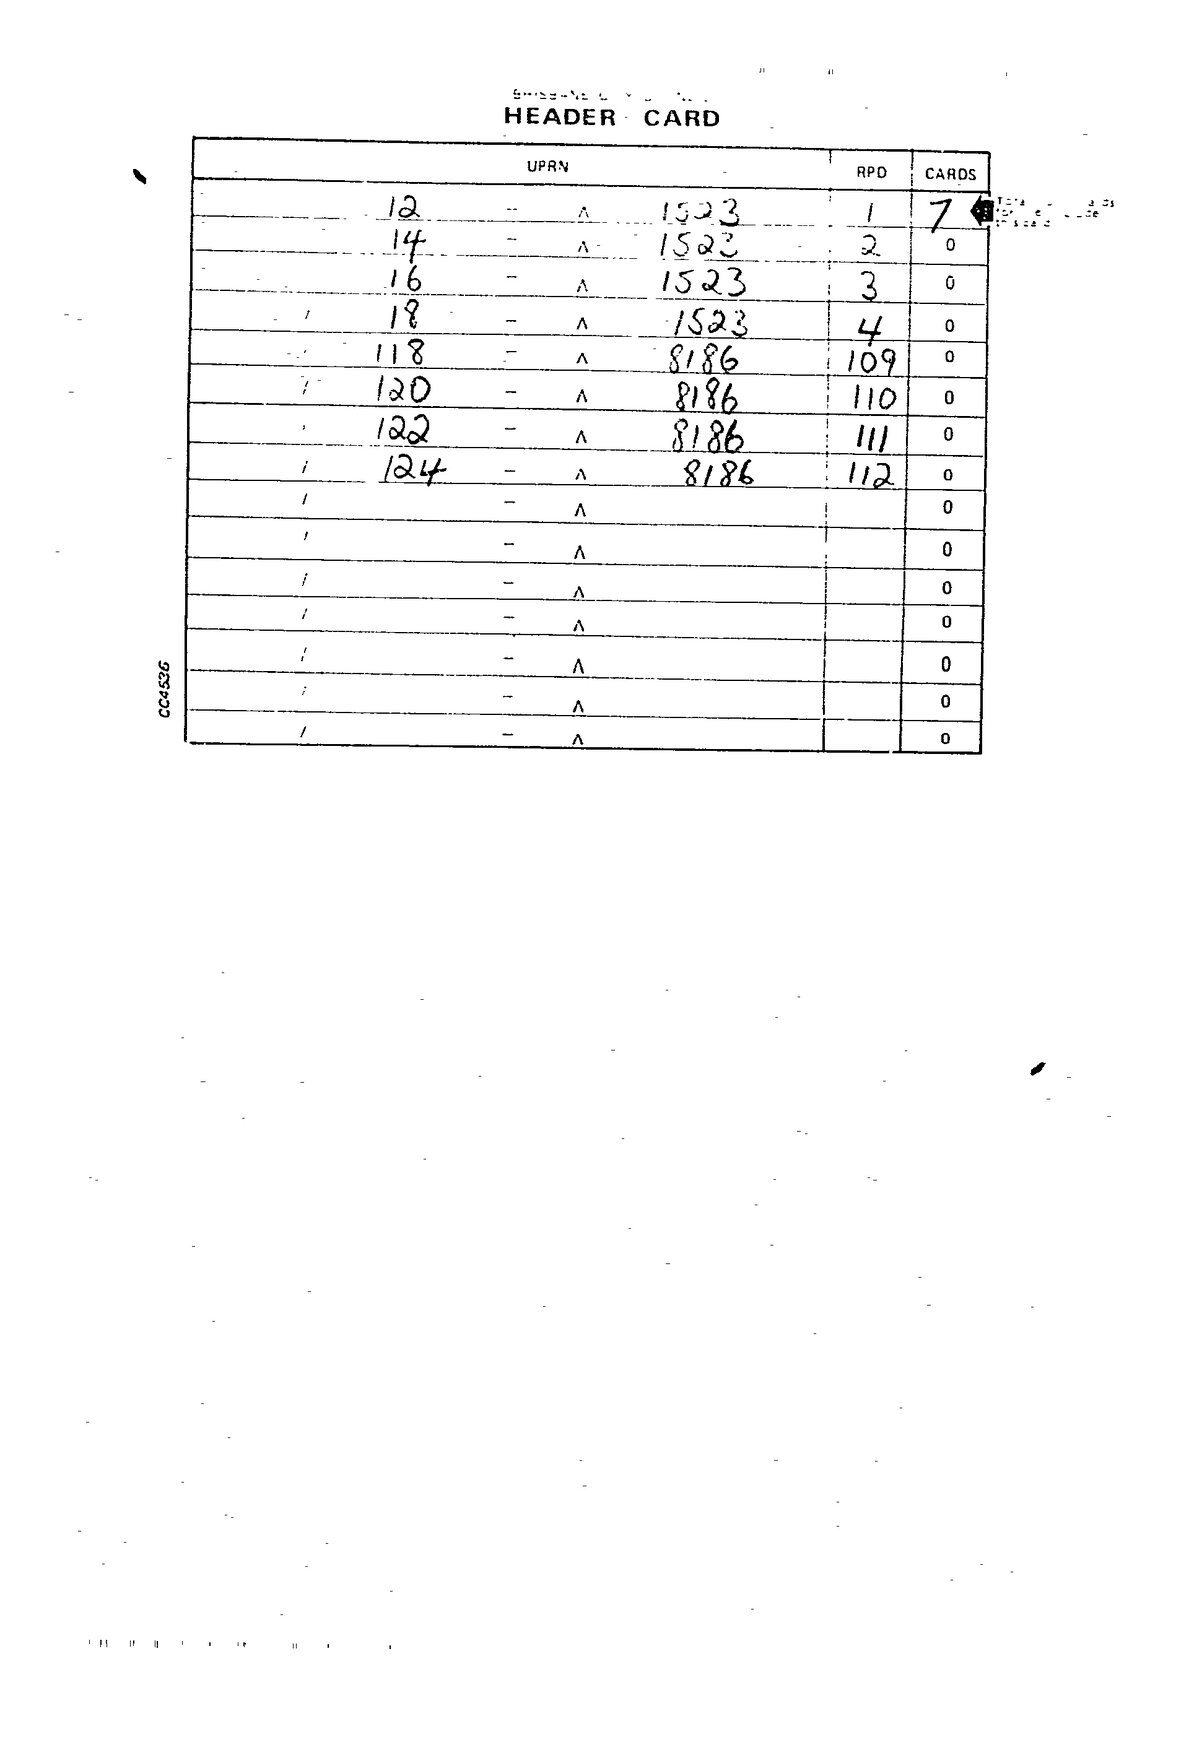 HEADER CARD
UPRN RPD CARDS
12 - ʌ 1523 1 7
14 - ʌ 1523 2 0
16 - ʌ 1523 3 0
/ 18 - ʌ 1523 4 0
/ 118 - ʌ 8186 109 0
/ 120 - ʌ 8186 110 0
/ 122 - ʌ 8186 111 0
/ 124 - ʌ 8186 112 0
/ - ʌ 0
/ - ʌ 0
/ - ʌ 0
/ - ʌ 0
/ - ʌ 0
/ - ʌ 0
/ - ʌ 0
CC4536